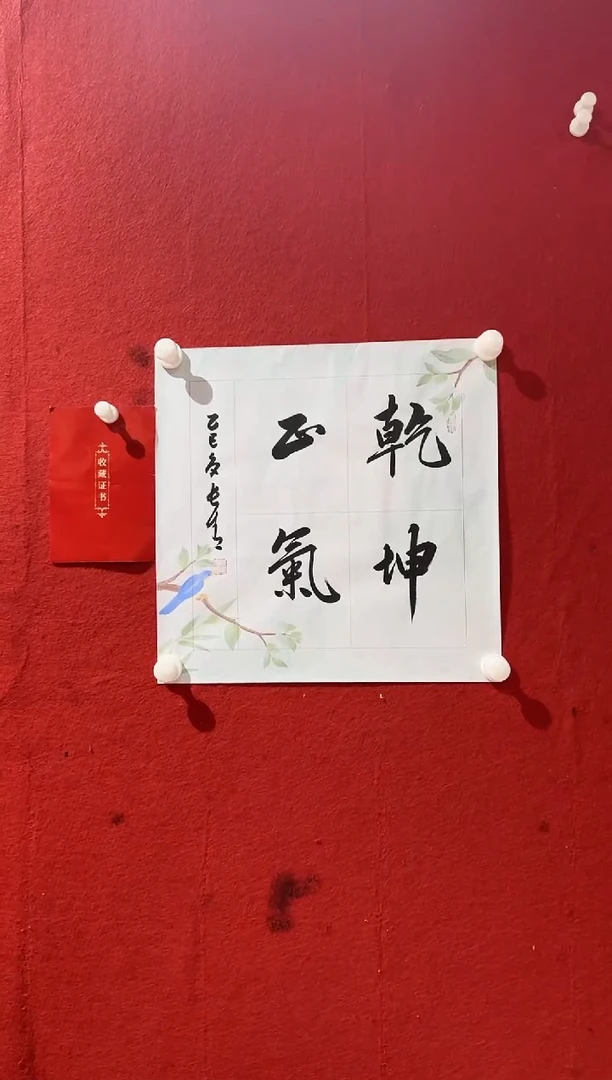 乾坤
正氣
乙巳
收藏证书